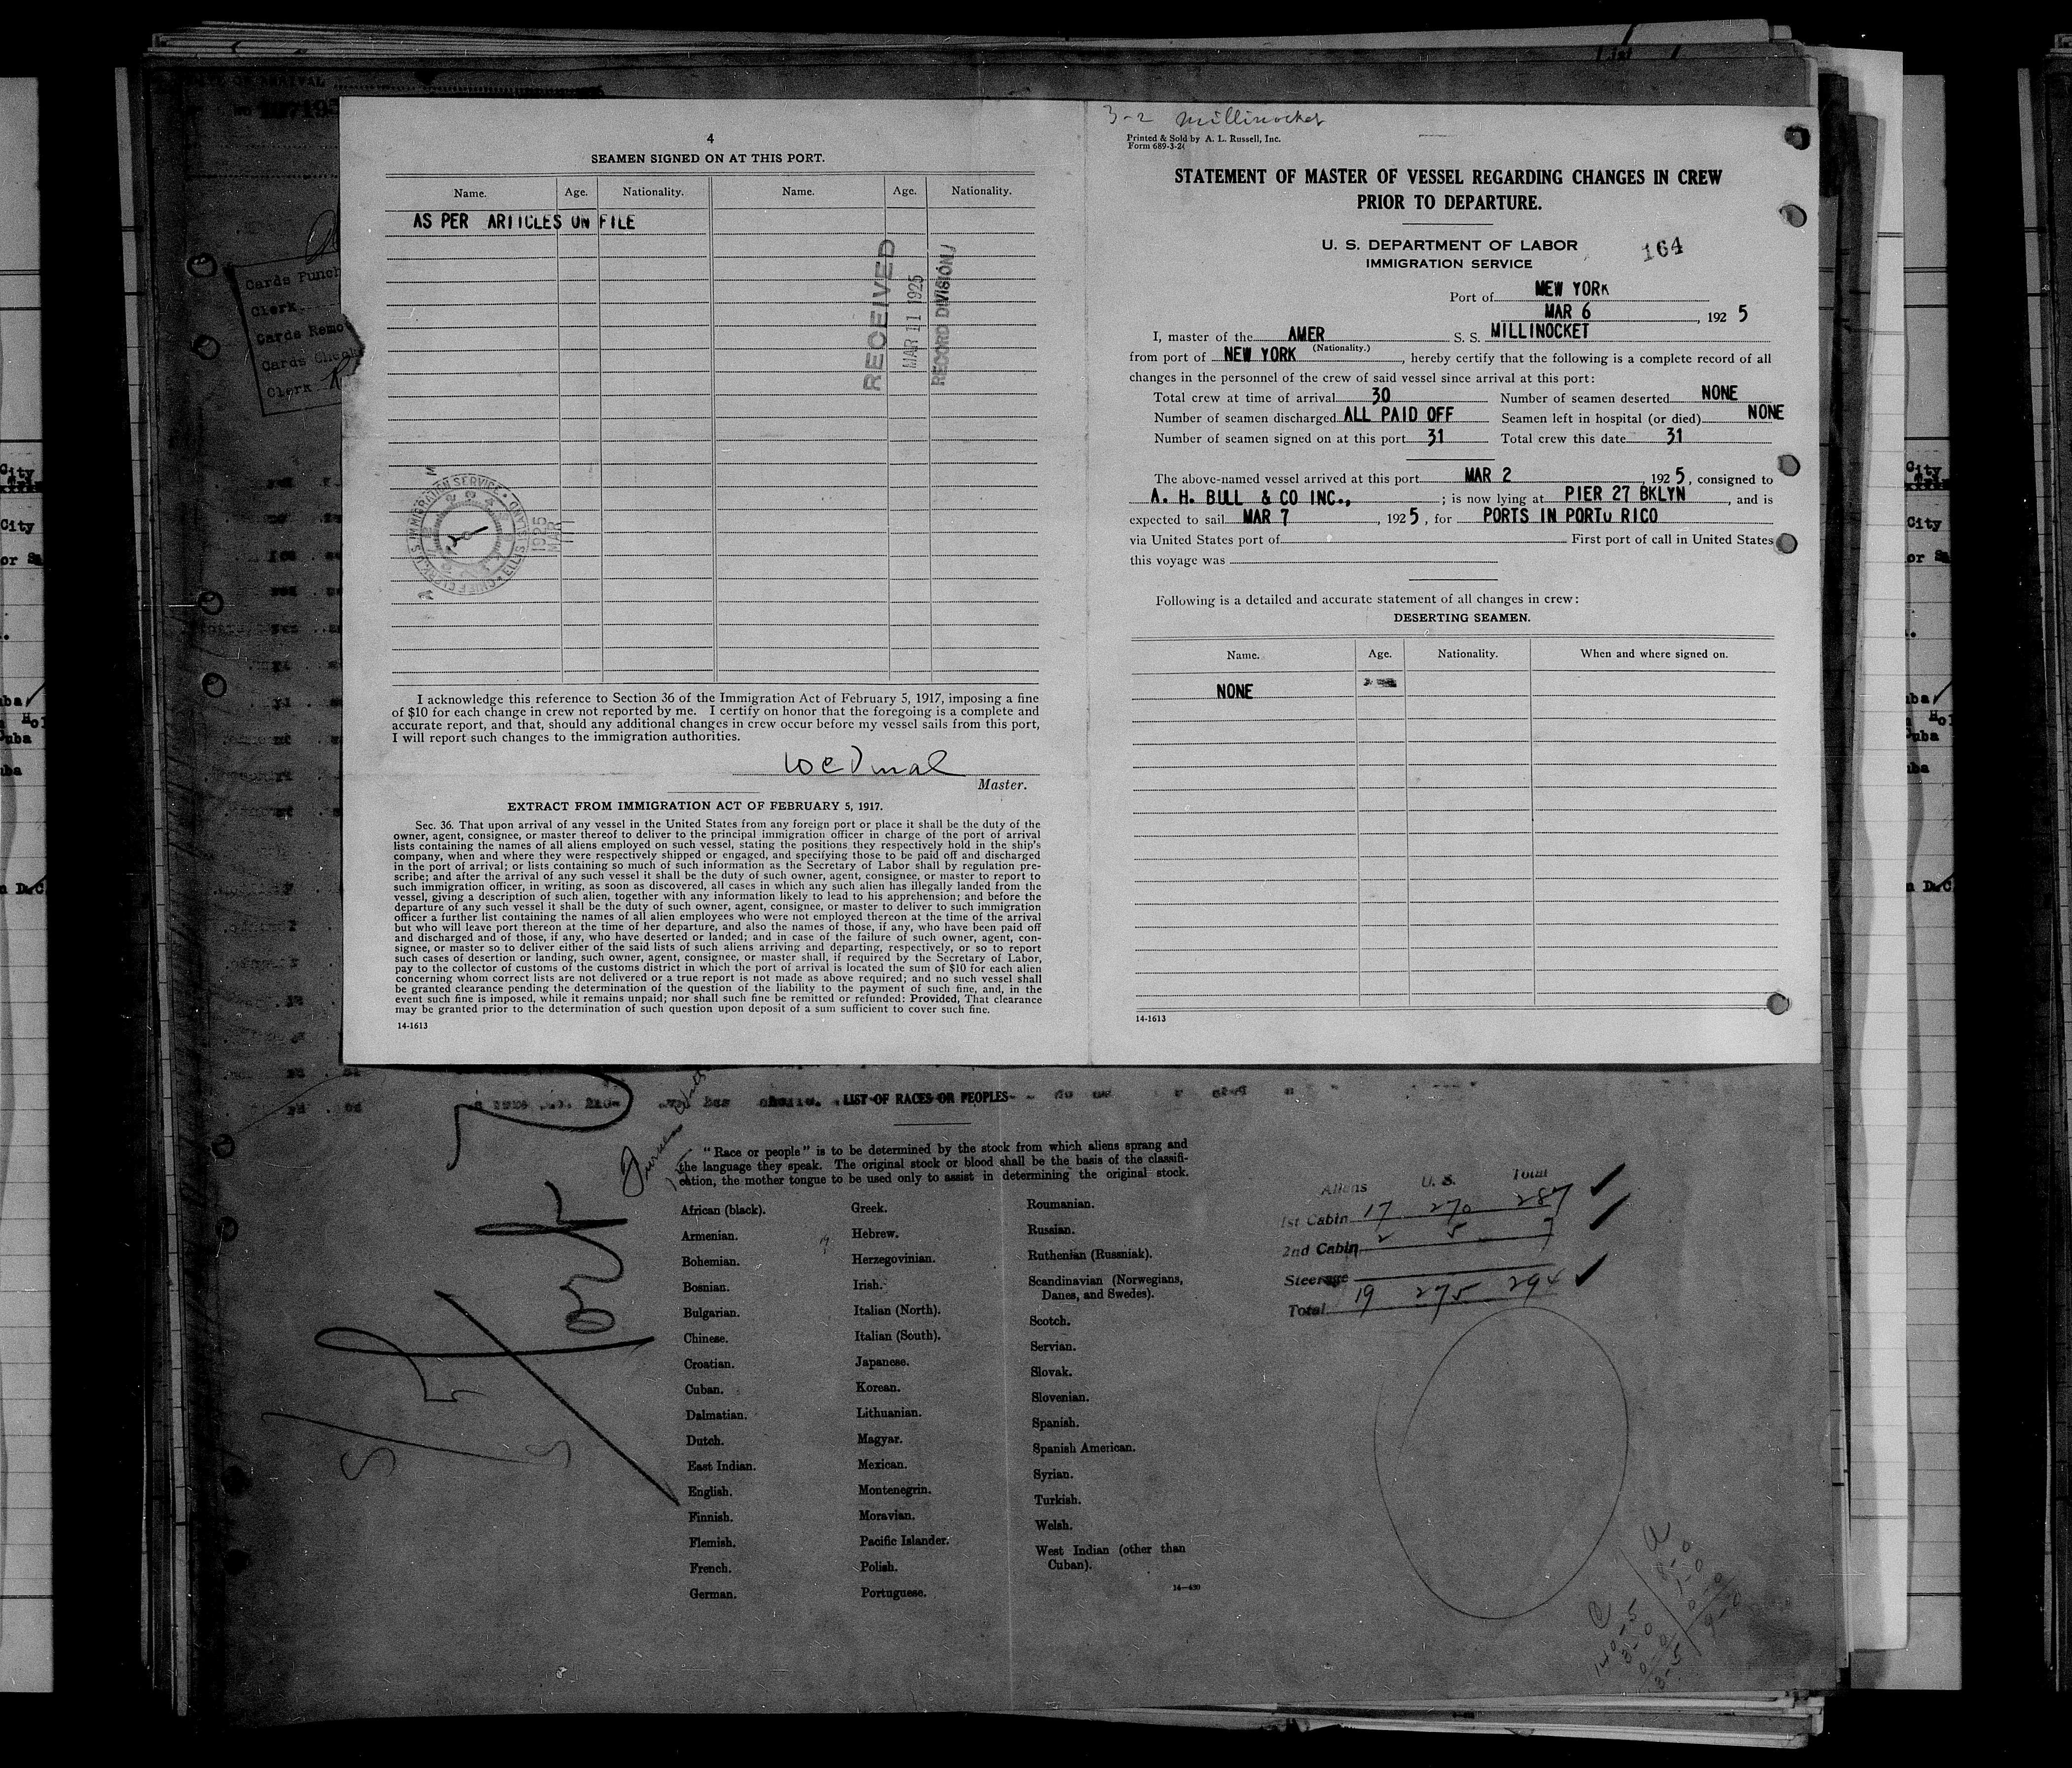 4
SEAMEN SIGNED ON AT THIS PORT.
Name. Age. Nationality. Name. Age. Nationality.
AS PER ARTICLES ON FILE
RECEIVED
MAR 11 1925
RECORD DIVISION
1925
MAR
I acknowledge this reference to Section 36 of the Immigration Act of February 5, 1917, imposing a fine
of $10 for each change in crew not reported by me. I certify on honor that the foregoing is a complete and
accurate report, and that, should any additional changes in crew occur before my vessel sails from this port,
I will report such changes to the immigration authorities.
Master.
EXTRACT FROM IMMIGRATION ACT OF FEBRUARY 5, 1917.
Sec. 36. That upon arrival of any vessel in the United States from any foreign port or place it shall be the duty of the
owner, agent, consignee, or master thereof to deliver to the principal immigration officer in charge of the port of arrival
lists containing the names of all aliens employed on such vessel, stating the positions they respectively hold in the ship's
company, when and where they were respectively shipped or engaged, and specifying those to be paid off and discharged
in the port of arrival; or lists containing so much of such information as the Secretary of Labor shall by regulation pre-
scribe; and after the arrival of any such vessel it shall be the duty of such owner, agent, consignee, or master to report to
such immigration officer, in writing, as soon as discovered, all cases in which any such alien has illegally landed from the
vessel, giving a description of such alien, together with any information likely to lead to his apprehension; and before the
departure of any such vessel it shall be the duty of such owner, agent, consignee, or master to deliver to such immigration
officer a further list containing the names of all alien employees who were not employed thereon at the time of the arrival
but who will leave port thereon at the time of her departure, and also the names of those, if any, who have been paid off
and discharged and of those, if any, who have deserted or landed; and in case of the failure of such owner, agent, con-
signee, or master so to deliver either of the said lists of such aliens arriving and departing, respectively, or so to report
such cases of desertion or landing, such owner, agent, consignee, or master shall, if required by the Secretary of Labor,
pay to the collector of customs of the customs district in which the port of arrival is located the sum of $10 for each alien
concerning whom correct lists are not delivered or a true report is not made as above required; and no such vessel shall
be granted clearance pending the determination of the question of the liability to the payment of such fine, and, in the
event such fine is imposed, while it remains unpaid; nor shall such fine be remitted or refunded: Provided, That clearance
may be granted prior to the determination of such question upon deposit of a sum sufficient to cover such fine.
14-1613
3-2 Millinocket
Printed & Sold by A. L. Russell, Inc.
Form 689-3-24
STATEMENT OF MASTER OF VESSEL REGARDING CHANGES IN CREW
PRIOR TO DEPARTURE.
U. S. DEPARTMENT OF LABOR
IMMIGRATION SERVICE
164
Port of NEW YORK
MAR 6, 192 5
I, master of the AMER S. S. MILLINOCKET
(Nationality.)
from port of NEW YORK, hereby certify that the following is a complete record of all
changes in the personnel of the crew of said vessel since arrival at this port:
Total crew at time of arrival 30 Number of seamen deserted NONE
Number of seamen discharged ALL PAID OFF Seamen left in hospital (or died) NONE
Number of seamen signed on at this port 31 Total crew this date 31
The above-named vessel arrived at this port MAR 2, 192 5, consigned to
A. H. BULL & CO INC., ; is now lying at PIER 27 BKLYN, and is
expected to sail MAR 7, 192 5, for PORTS IN PORTO RICO
via United States port of First port of call in United States
this voyage was
Following is a detailed and accurate statement of all changes in crew:
DESERTING SEAMEN.
Name. Age. Nationality. When and where signed on.
NONE
14-1613
Cards Punch
Clerk
Cards Remo
Cards Check
Clerk
LIST OF RACES OR PEOPLES
"Race or people" is to be determined by the stock from which aliens sprang and
the language they speak. The original stock or blood shall be the basis of the classifi-
cation, the mother tongue to be used only to assist in determining the original stock.
African (black).
Armenian.
Bohemian.
Bosnian.
Bulgarian.
Chinese.
Croatian.
Cuban.
Dalmatian.
Dutch.
East Indian.
English.
Finnish.
Flemish.
French.
German.
Greek.
Hebrew.
Herzegovinian.
Irish.
Italian (North).
Italian (South).
Japanese.
Korean.
Lithuanian.
Magyar.
Mexican.
Montenegrin.
Moravian.
Pacific Islander.
Polish.
Portuguese.
Roumanian.
Russian.
Ruthenian (Russniak).
Scandinavian (Norwegians,
Danes, and Swedes).
Scotch.
Servian.
Slovak.
Slovenian.
Spanish.
Spanish American.
Syrian.
Turkish.
Welsh.
West Indian (other than
Cuban).
14-430
Aliens U. S. Total
1st Cabin 17 270 287
2nd Cabin 2 5 7
Steerage
Total 19 275 294